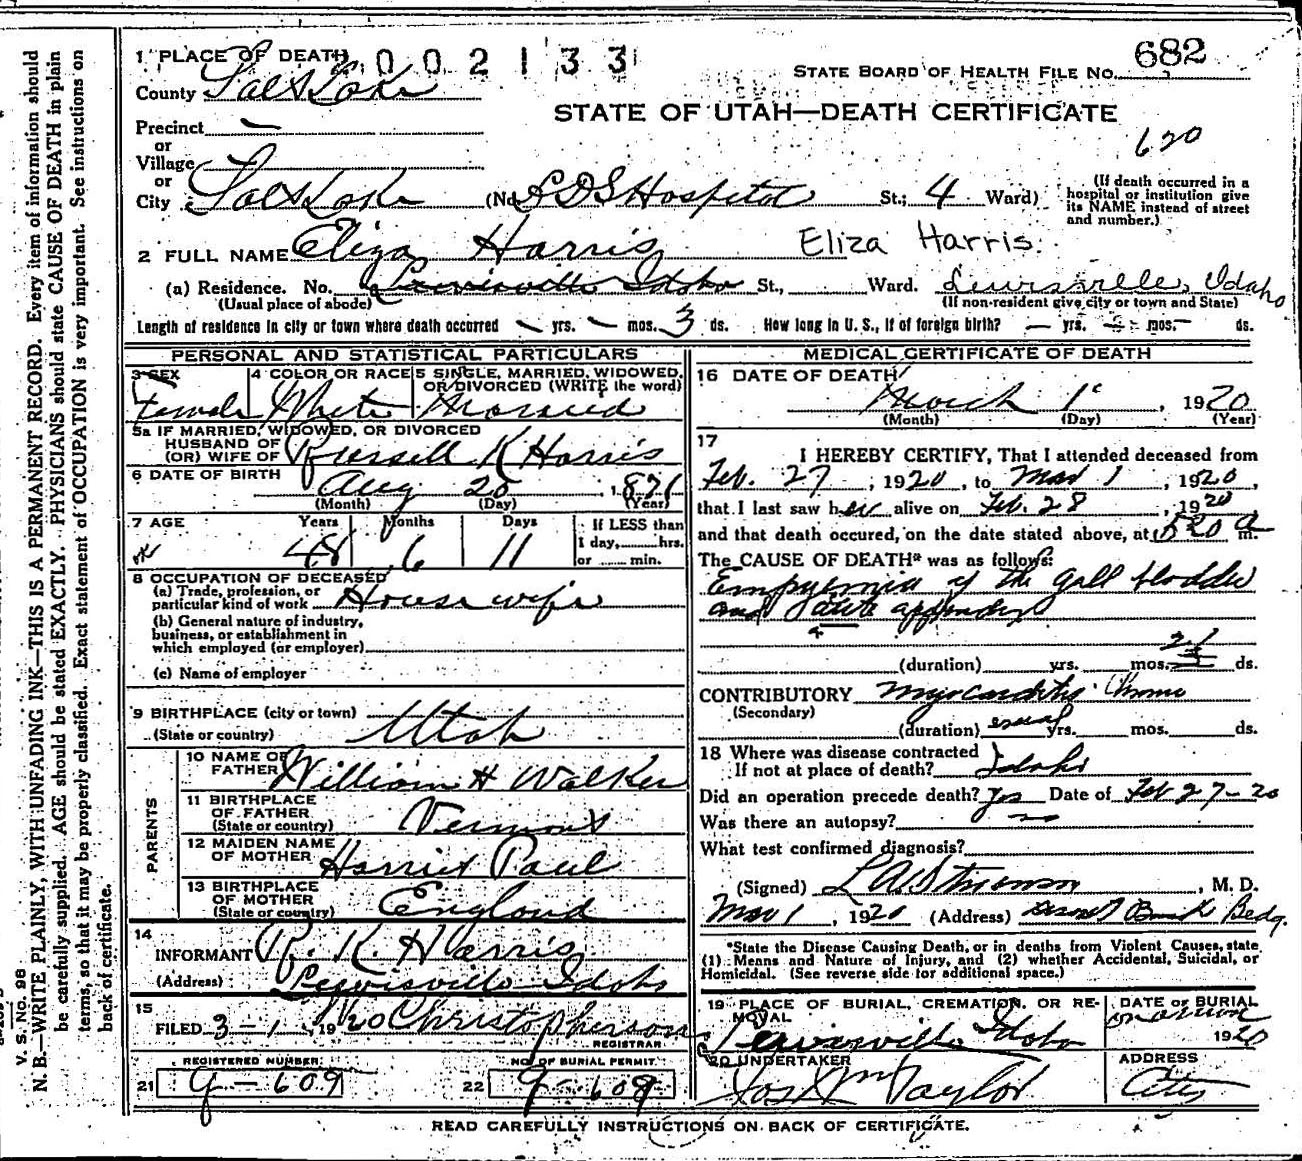 1 PLACE OF DEATH 002133
682
STATE BOARD OF HEALTH FILE NO.
County Salt Lake
STATE OF UTAH—DEATH CERTIFICATE
Precinct —
620
or
Village
or
City Salt Lake (No. LDS Hospital St.; 4 Ward)
(If death occurred in a hospital or institution give its NAME instead of street and number.)
2 FULL NAME Eliza Harris Eliza Harris
(a) Residence. No. Lewisville Idaho St., Ward. Lewisville, Idaho
(Usual place of abode) (If non-resident give city or town and State)
Length of residence in city or town where death occurred — yrs. — mos. 3 ds. How long in U. S., if of foreign birth? — yrs. — mos. — ds.
PERSONAL AND STATISTICAL PARTICULARS
3 SEX 4 COLOR OR RACE 5 SINGLE, MARRIED, WIDOWED, OR DIVORCED (WRITE the word)
Female White Married
5a IF MARRIED, WIDOWED, OR DIVORCED
HUSBAND OF
(OR) WIFE OF Russell K Harris
6 DATE OF BIRTH Aug 20 1871
(Month) (Day) (Year)
7 AGE Years Months Days If LESS than
48 6 11 1 day, hrs.
or min.
8 OCCUPATION OF DECEASED
(a) Trade, profession, or
particular kind of work House wife
(b) General nature of industry,
business, or establishment in
which employed (or employer)
(c) Name of employer
9 BIRTHPLACE (city or town)
(State or country) Utah
PARENTS
10 NAME OF
FATHER William H Walker
11 BIRTHPLACE
OF FATHER
(State or country) Vermont
12 MAIDEN NAME
OF MOTHER Harriet Paul
13 BIRTHPLACE
OF MOTHER
(State or country) England
14
INFORMANT R. K. Harris
(Address) Lewisville Idaho
15
FILED 3-1, 1920 Christopherson
REGISTRAR
REGISTERED NUMBER NO. OF BURIAL PERMIT
21 9-609 22 9-609
MEDICAL CERTIFICATE OF DEATH
16 DATE OF DEATH
March 1, 1920
(Month) (Day) (Year)
17
I HEREBY CERTIFY, That I attended deceased from
Feb. 27, 1920, to Mar 1, 1920,
that I last saw her alive on Feb. 28, 1920
and that death occured, on the date stated above, at 520 a m.
The CAUSE OF DEATH* was as follows:
Empyemia of the gall bladder
and acute appendix
(duration) yrs. mos. ds.
CONTRIBUTORY Myocarditis Chronic
(Secondary)
(duration) several yrs. mos. ds.
18 Where was disease contracted
If not at place of death? Idaho
Did an operation precede death? Yes Date of Feb 27-20
Was there an autopsy? no
What test confirmed diagnosis?
(Signed) L A Stevenson, M. D.
Mar 1, 1920 (Address) Deseret Bank Bedg.
*State the Disease Causing Death, or in deaths from Violent Causes, state
(1) Means and Nature of Injury, and (2) whether Accidental, Suicidal, or
Homicidal. (See reverse side for additional space.)
19 PLACE OF BURIAL, CREMATION, OR RE- DATE OF BURIAL
MOVAL
Lewisville Idaho 1920
20 UNDERTAKER ADDRESS
Jos Wm Taylor City
READ CAREFULLY INSTRUCTIONS ON BACK OF CERTIFICATE.
V. S. No. 98
N. B.—WRITE PLAINLY, WITH UNFADING INK—THIS IS A PERMANENT RECORD. Every item of information should
be carefully supplied. AGE should be stated EXACTLY. PHYSICIANS should state CAUSE OF DEATH in plain
terms, so that it may be properly classified. Exact statement of OCCUPATION is very important. See instructions on
back of certificate.